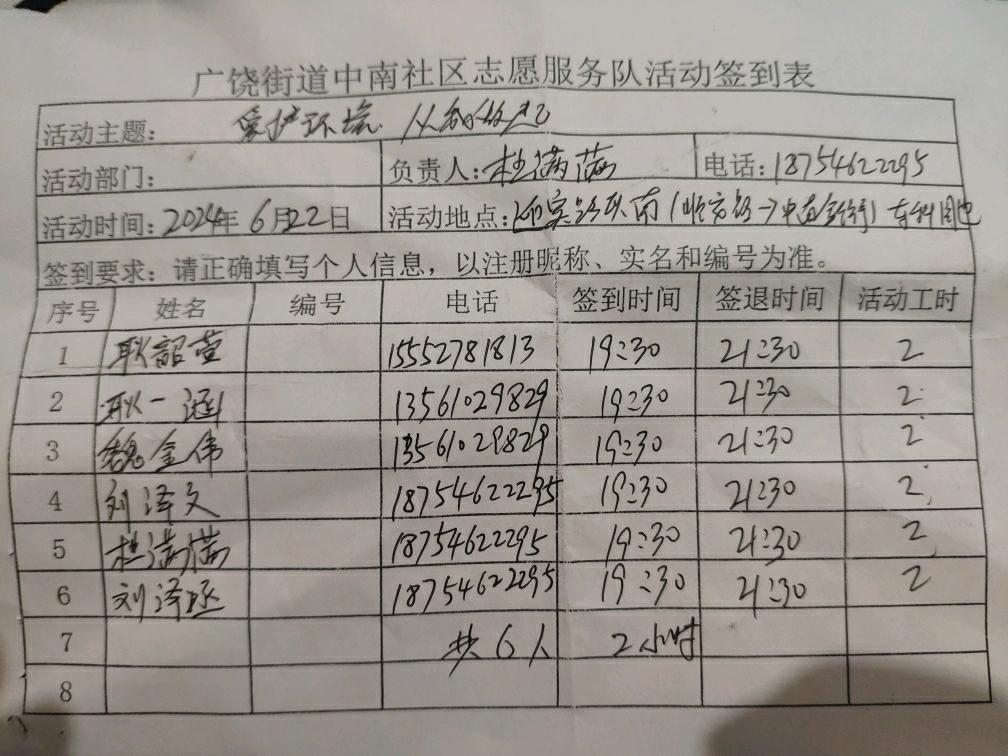 广饶街道中南社区志愿服务队活动签到表
活动主题: 爱护环境 从我做起
活动部门: 负责人:杜满满 电话:18754622295
活动时间:2024年6月22日 活动地点:迎宾路路南(
签到要求: 请正确填写个人信息, 以注册昵称、实名和编号为准。
序号 姓名 编号 电话 签到时间 签退时间 活动工时
1 耿韶莹 15552781813 19:30 21:30 2
2 耿一涵 13561029829 19:30 21:30 2
3 魏金伟 13561029829 19:30 21:30 2
4 刘泽文 18754622295 19:30 21:30 2
5 杜满满 18754622295 19:30 21:30 2
6 刘泽丞 18754622295 19:30 21:30 2
7 共6人 2小时
8